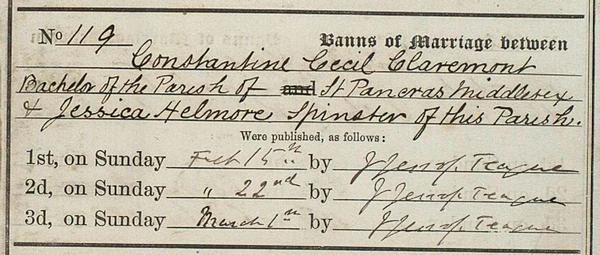 No 119 Banns of Marriage between
Constantine Cecil Claremont
Bachelor of the Parish of and St Pancras Middlesex
& Jessica Helmore Spinster of this Parish.
Were published, as follows:
1st, on Sunday Feb 15th by J Jessop Teague
2d, on Sunday " 22nd by J Jessop Teague
3d, on Sunday March 1st by J Jessop Teague